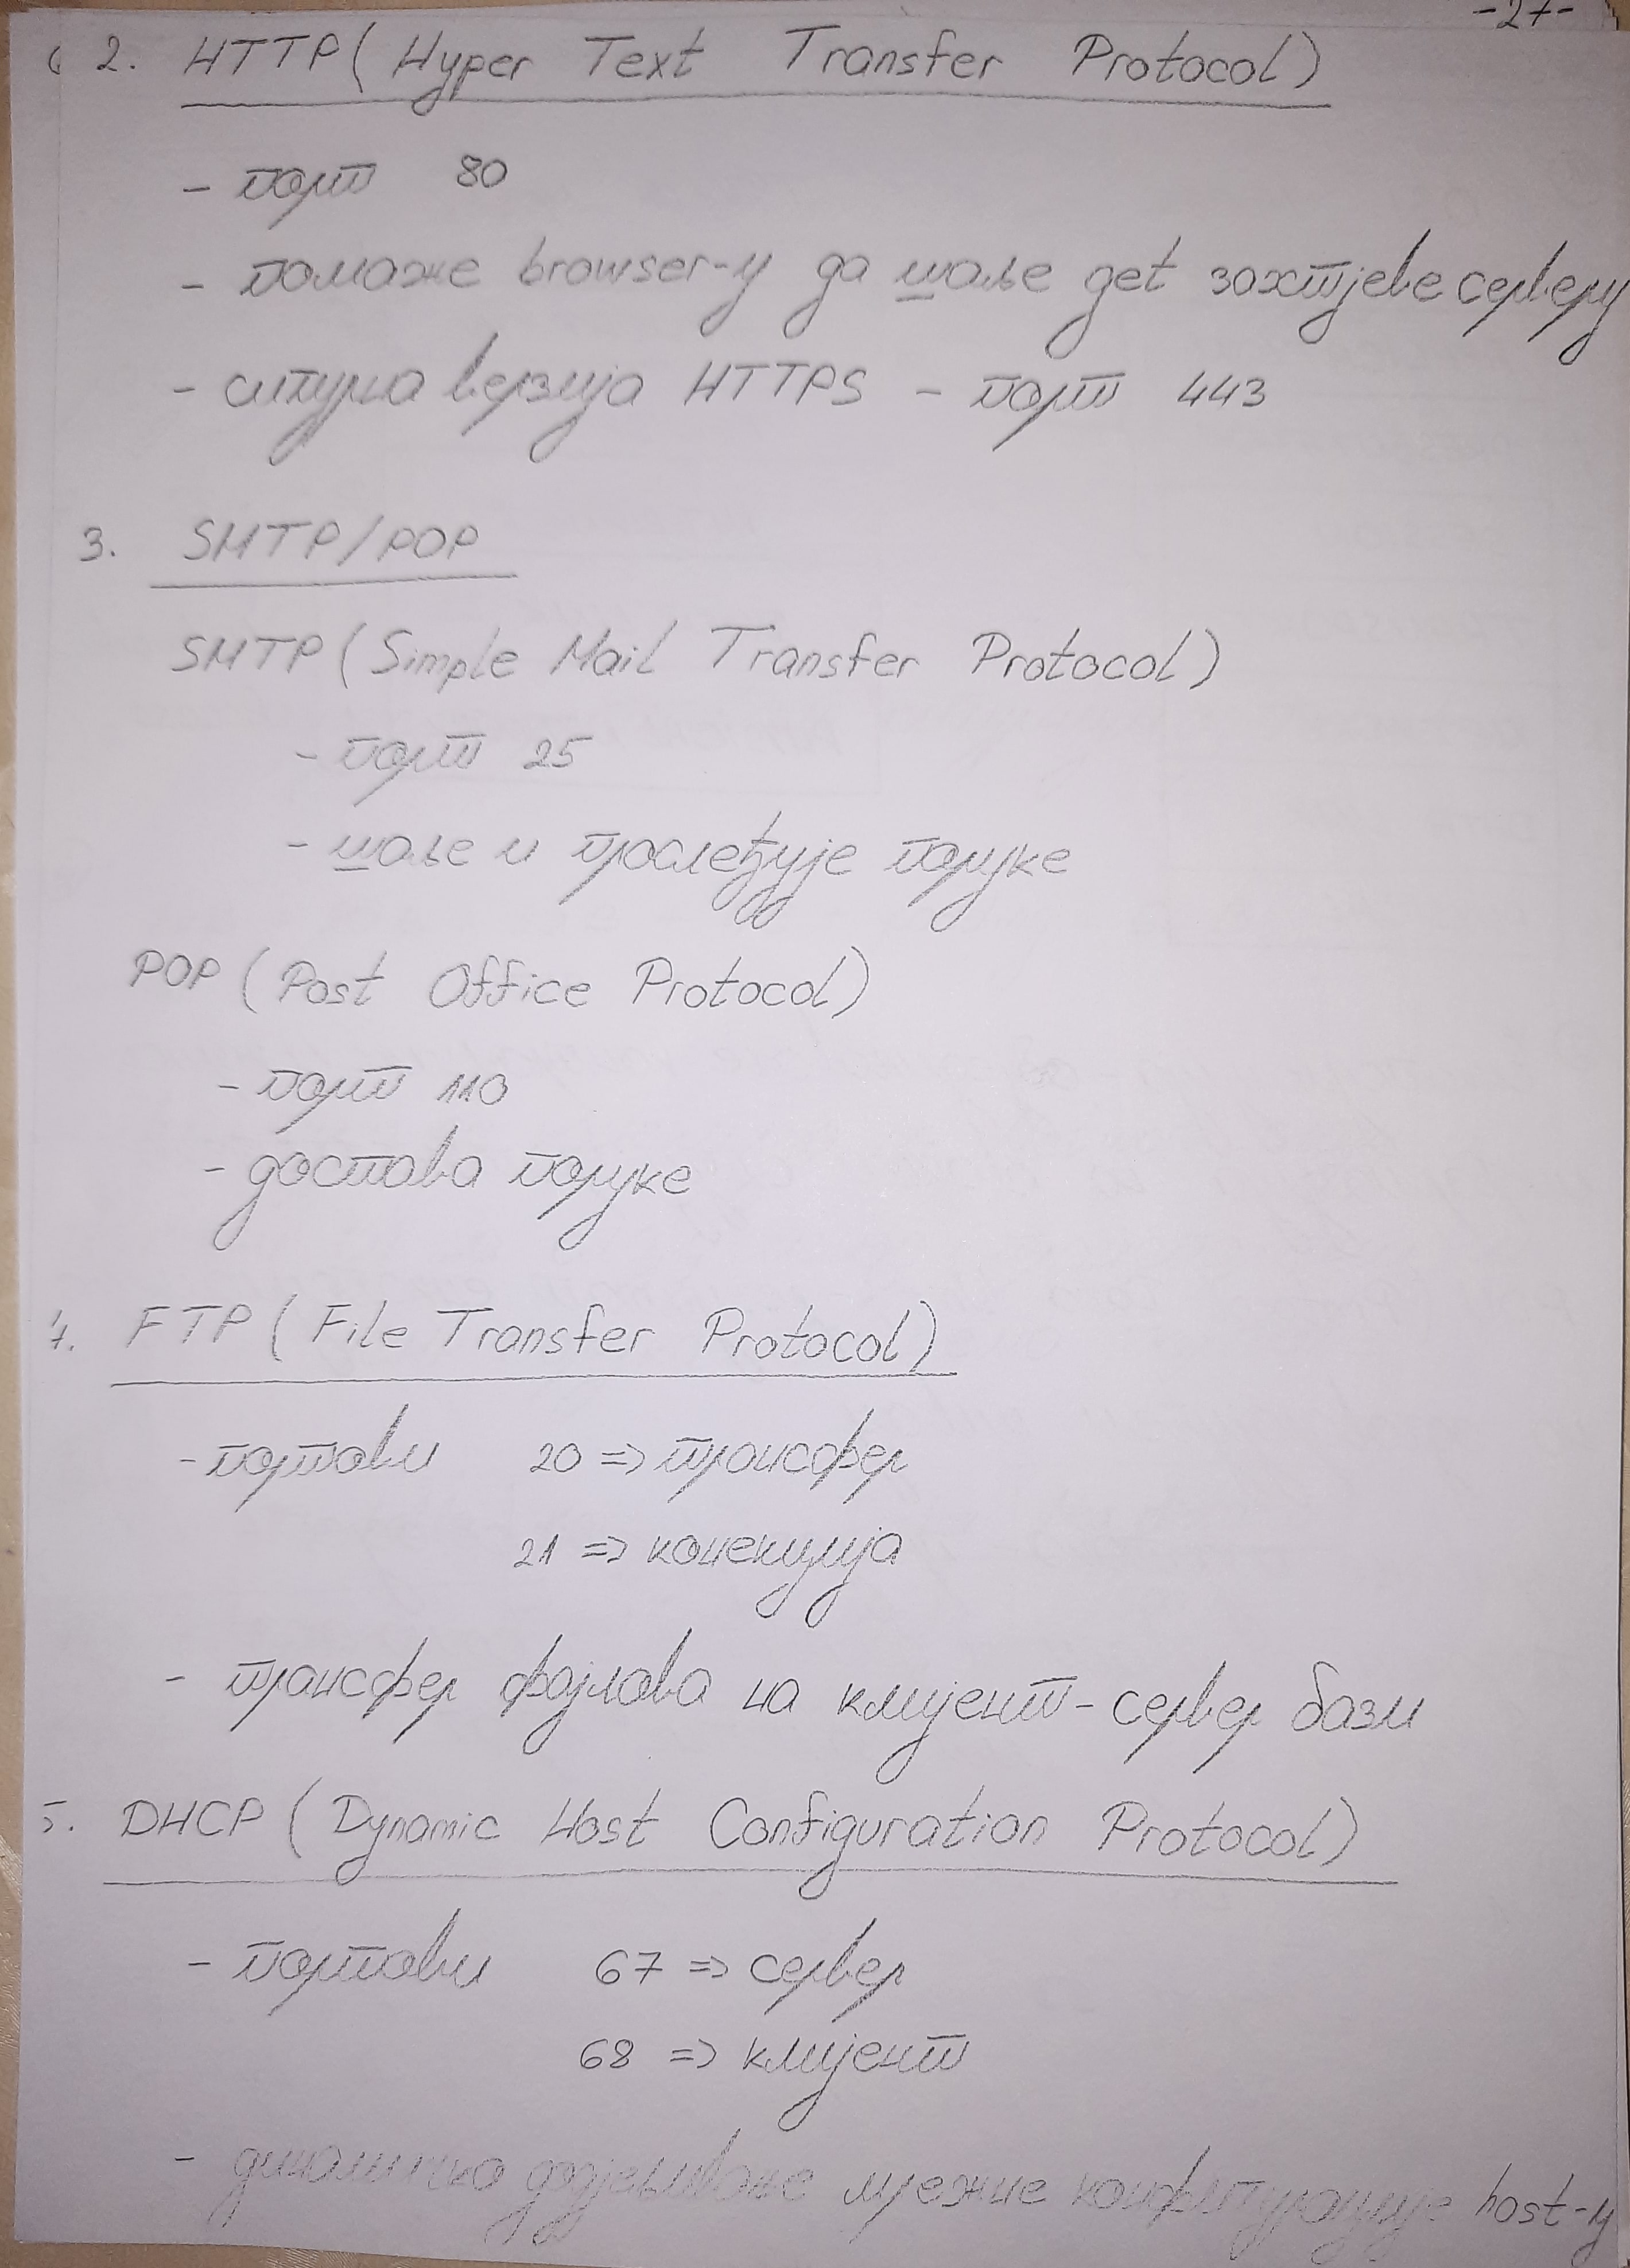 -27-
2. HTTP (Hyper Text Transfer Protocol)
- порт 80
- помаже browser-у да шаље get захтјеве серверу
- сигурна верзија HTTPS - порт 443
3. SMTP/POP
SMTP (Simple Mail Transfer Protocol)
- порт 25
- шаље и прослеђује поруке
POP (Post Office Protocol)
- порт 110
- достава поруке
4. FTP (File Transfer Protocol)
- портови 20 => трансфер
21 => конекција
- трансфер фајлова на клијент-сервер бази
5. DHCP (Dynamic Host Configuration Protocol)
- портови 67 => сервер
68 => клијент
- динамичко додјељивање мрежне конфигурације host-у